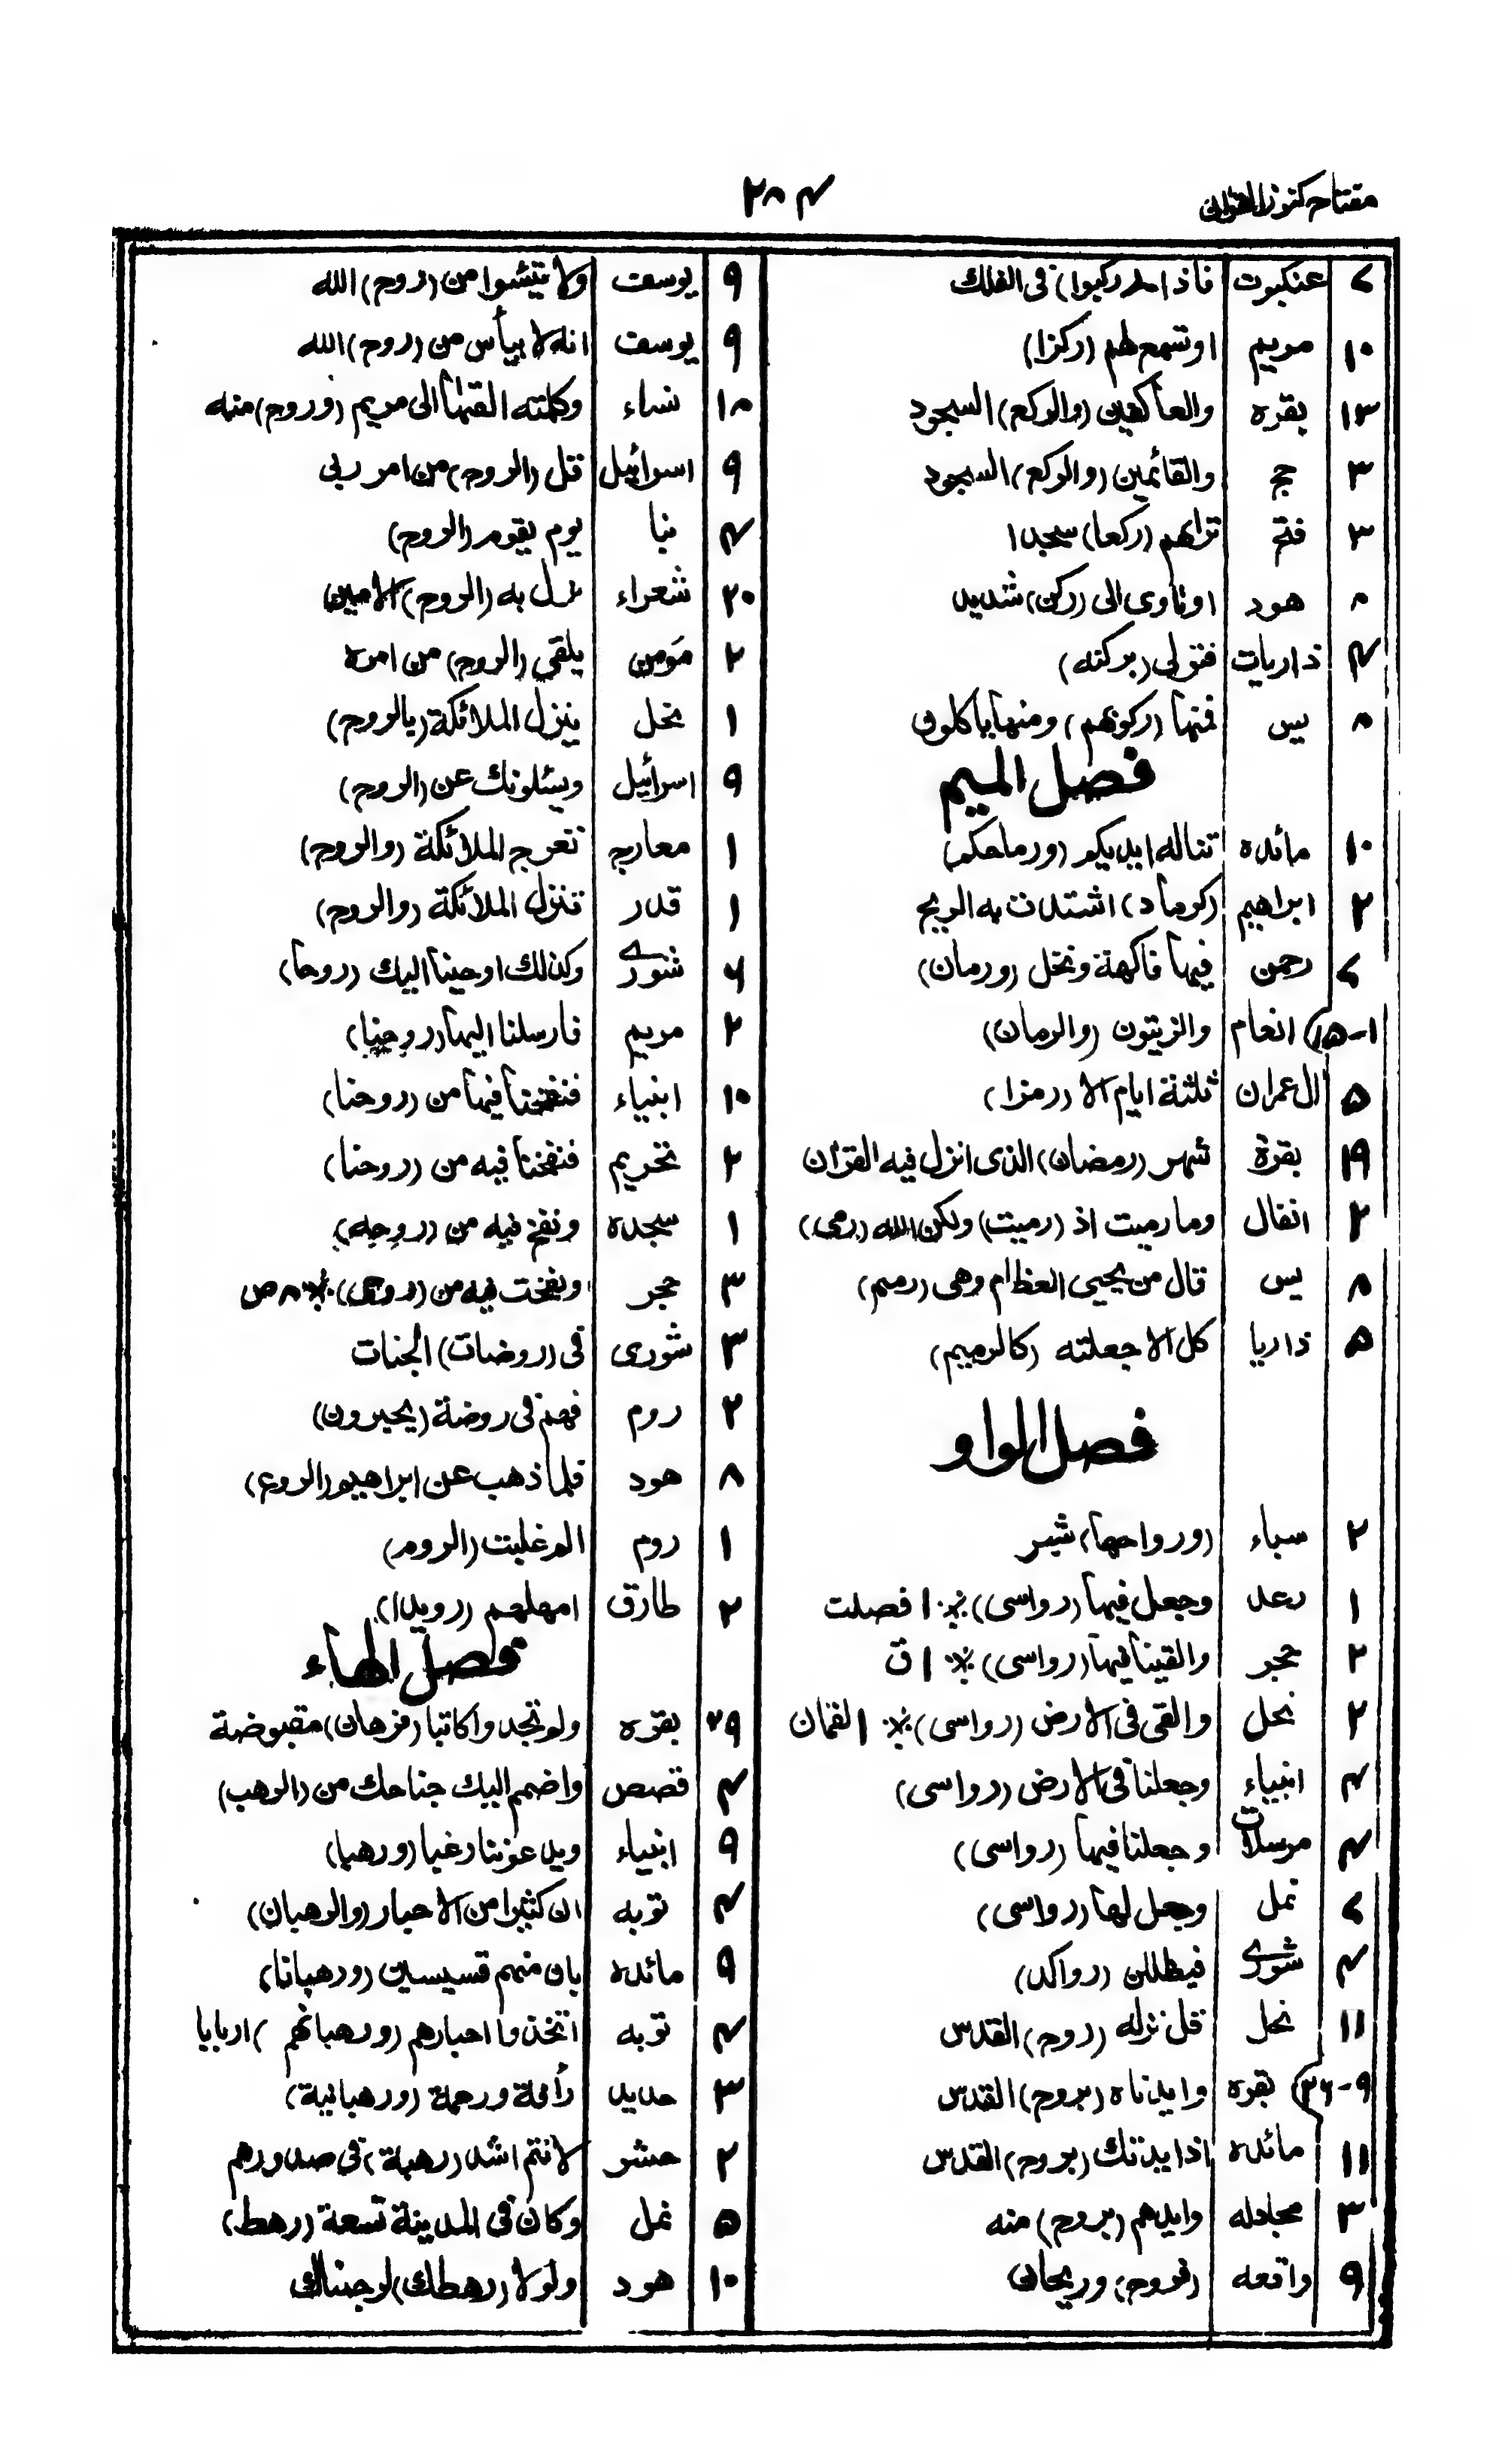 مفتاح كنوز القران
٢٨٤
٧ عنكبوت فاذا (ركبوا) فى الفلك
١٠ مريم او تسمع لهم (ركزا)
١٣ بقره والعاكفين (والركع) السجود
٣ حج والقائمين (والركع) السجود
٣ فتح تراهم (ركعا) سجدا
٨ هود اوناوى الى (ركن) شديد
٤ ذاريات فتولى (بركنه)
٨ يس فمنها (ركوبهم) ومنها ياكلون
فصل الميم
١٠ مائده تناله ايديكم (ورماحكم)
٢ ابراهيم (كرماد) اشتدت به الريح
٧ رحمن فيها فاكهة ونخل (ورمان)
١-١٥ انعام والزيتون (والرمان)
٥ ال عمران ثلثة ايام الا (رمزا)
١٩ بقرة شهر (رمضان) الذى انزل فيه القران
٢ انفال وما رميت اذ (رميت) ولكن الله (رمى)
٨ يس قال من يحيى العظام وهى (رميم)
٥ ذاريا كل الا جعلته (كالرميم)
فصل الواو
٢ سباء (ورواحها) شهر
١ رعد وجعل فيها (رواسى) ٪ ١٠ فصلت
٢ حجر والقينا فيها (رواسى) ٪ ١٠ ق
٢ نحل والقى فى الارض (رواسى) ٪ ١٠ لقمان
٤ انبياء وجعلنا فى الارض (رواسى)
٤ مرسلات وجعلنا فيها (رواسى)
٧ نمل وجعل لها (رواسى)
٤ شورے فيظللن (رواكد)
١١ نحل قل نزله (روح) القدس
٩-٣٦ بقره وايدناه (بروح) القدس
١١ مائده اذ ايدتك (بروح) القدس
٣ مجادله وايدهم (بروح) منه
٩ واقعه (فروح) وريحان
٩ يوسف ولا تيئسوا من (روح) الله
٩ يوسف انه لا بيأس من (روح) الله
١٨ نساء وكلمته القها الى مريم (وروح) منه
٩ اسرائيل قل (الروح) من امر ربى
٤ نبا يوم يقوم (الروح)
٢٠ شعراء نزل به (الروح) الامين
٢ مؤمن يلقى (الروح) من امره
١ نحل ينزل الملائكة (بالروح)
٩ اسرائيل ويسئلونك عن (الروح)
١ معارج تعرج الملائكة (والروح)
١ قدر تنزل الملائكة (والروح)
٦ شورے وكذلك اوحينا اليك (روحا)
٢ مريم فارسلنا اليها (روحنا)
١٠ انبياء فنفخنا فيها من (روحنا)
٢ تحريم فنفخنا فيه من (روحنا)
١ سجده ونفخ فيه من (روحه)
٣ حجر ونفخت فيه من (روحى) ٪ ٨ ص
٣ شورى فى (روضات) الجنات
٢ روم فهم فى روضة (يحبرون)
٨ هود فلما ذهب عن ابراهيم (الروع)
١ روم الم غلبت (الروم)
٢ طارق امهلهم (رويدا)
فصل الهاء
٢٩ بقره ولو تجدوا كاتبا (فرهان) مقبوضة
٤ قصص واضمم اليك جناحك من (الرهب)
٩ انبياء ويدعوننا رغبا (ورهبا)
٤ توبه ان كثيرا من الاحبار (والرهبان)
٩ مائده بان منهم قسيسين (ورهبانا)
٤ توبه اتخذوا احبارهم (ورهبانهم) اربابا
٣ حديد رأفة ورحمة (ورهبانية)
٢ حشر لانتم اشد (رهبة) فى صدورهم
٥ نمل وكان فى المدينة تسعة (رهط)
١٠ هود ولولا (رهطك) لرجمناك